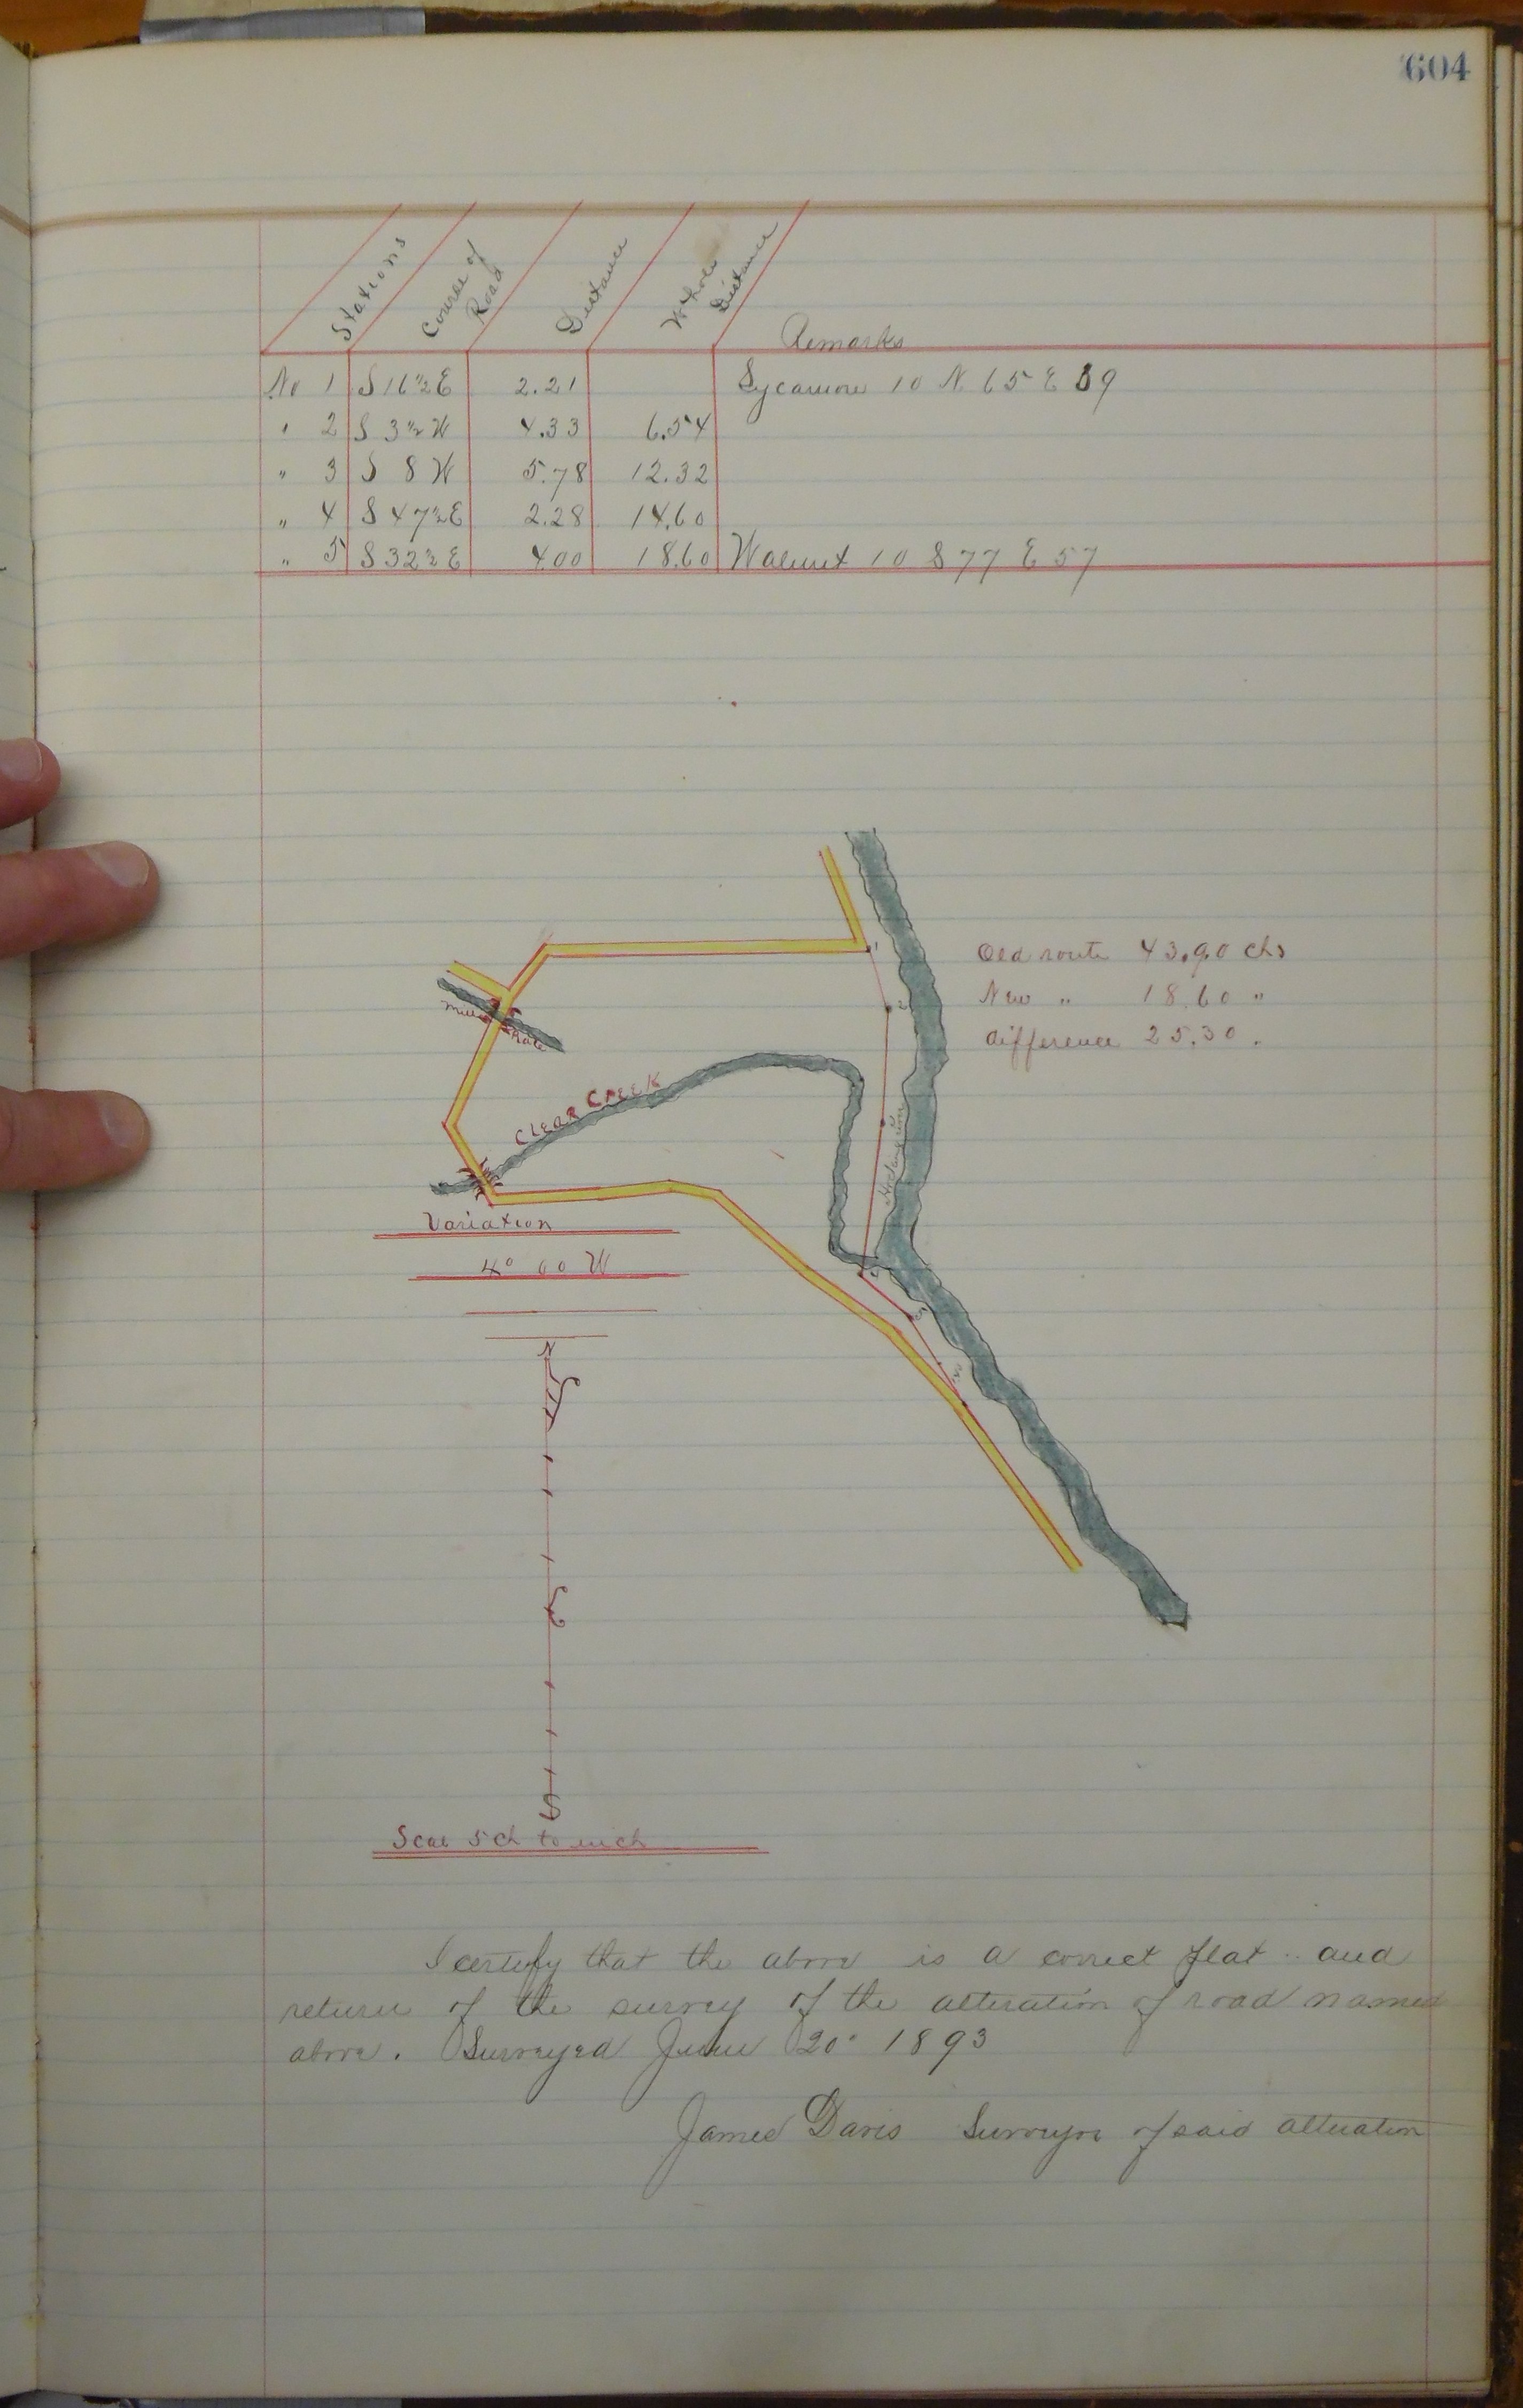 604
Stations Course of Road Distance Whole Distance Remarks
No 1 S 16 1/2 E 2.21 Sycamore 10 N 65 E 39
" 2 S 3 1/2 W 4.33 6.54
" 3 S 8 W 5.78 12.32
" 4 S 47 1/2 E 2.28 14.60
" 5 S 32 1/2 E 4.00 18.60 Walnut 10 S 77 E 57
1
2
Old route 43.90 chs
New " 18.60 "
difference 25.30.
Mill Race
CLEAR CREEK
4
5
Variation
4° 00 W
N
S
Scal 5 ch to inch
I certify that the above is a correct plat and
return of the survey of the alteration of road named
above. Surveyed June 20" 1893
James Davis Surveyor of said alteration